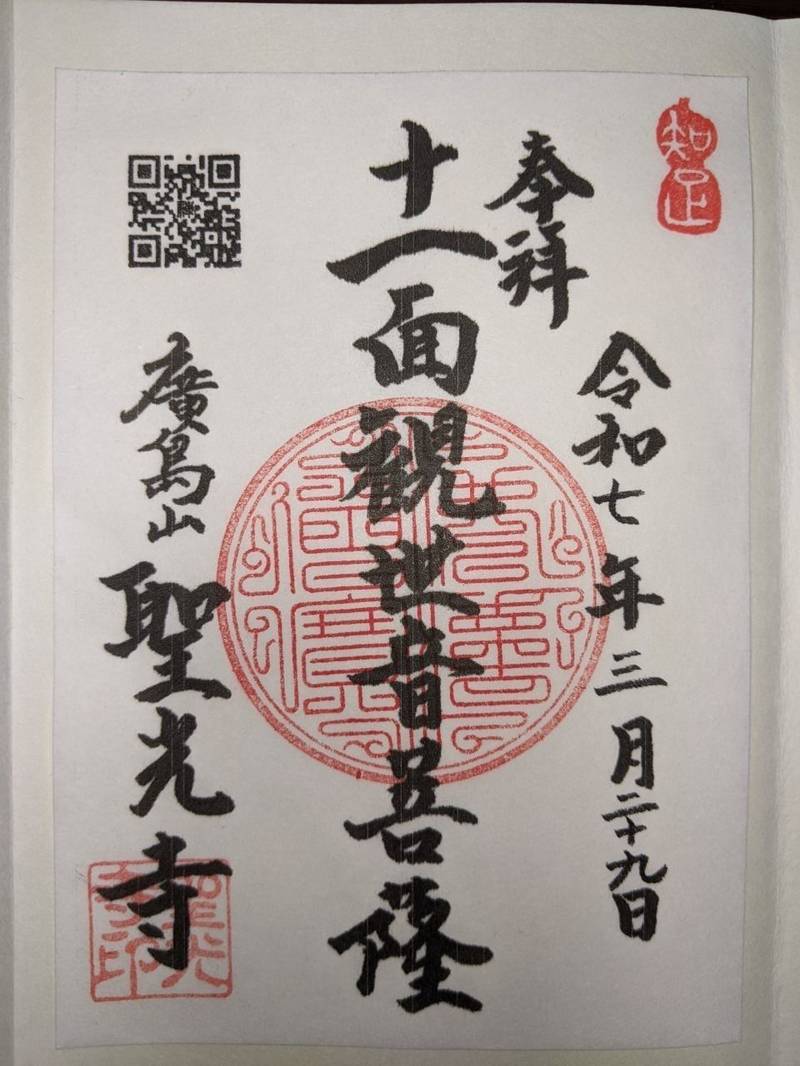 知足
令和七年三月二十九日
奉拝
十一面観世音菩薩
廣島山 聖光寺